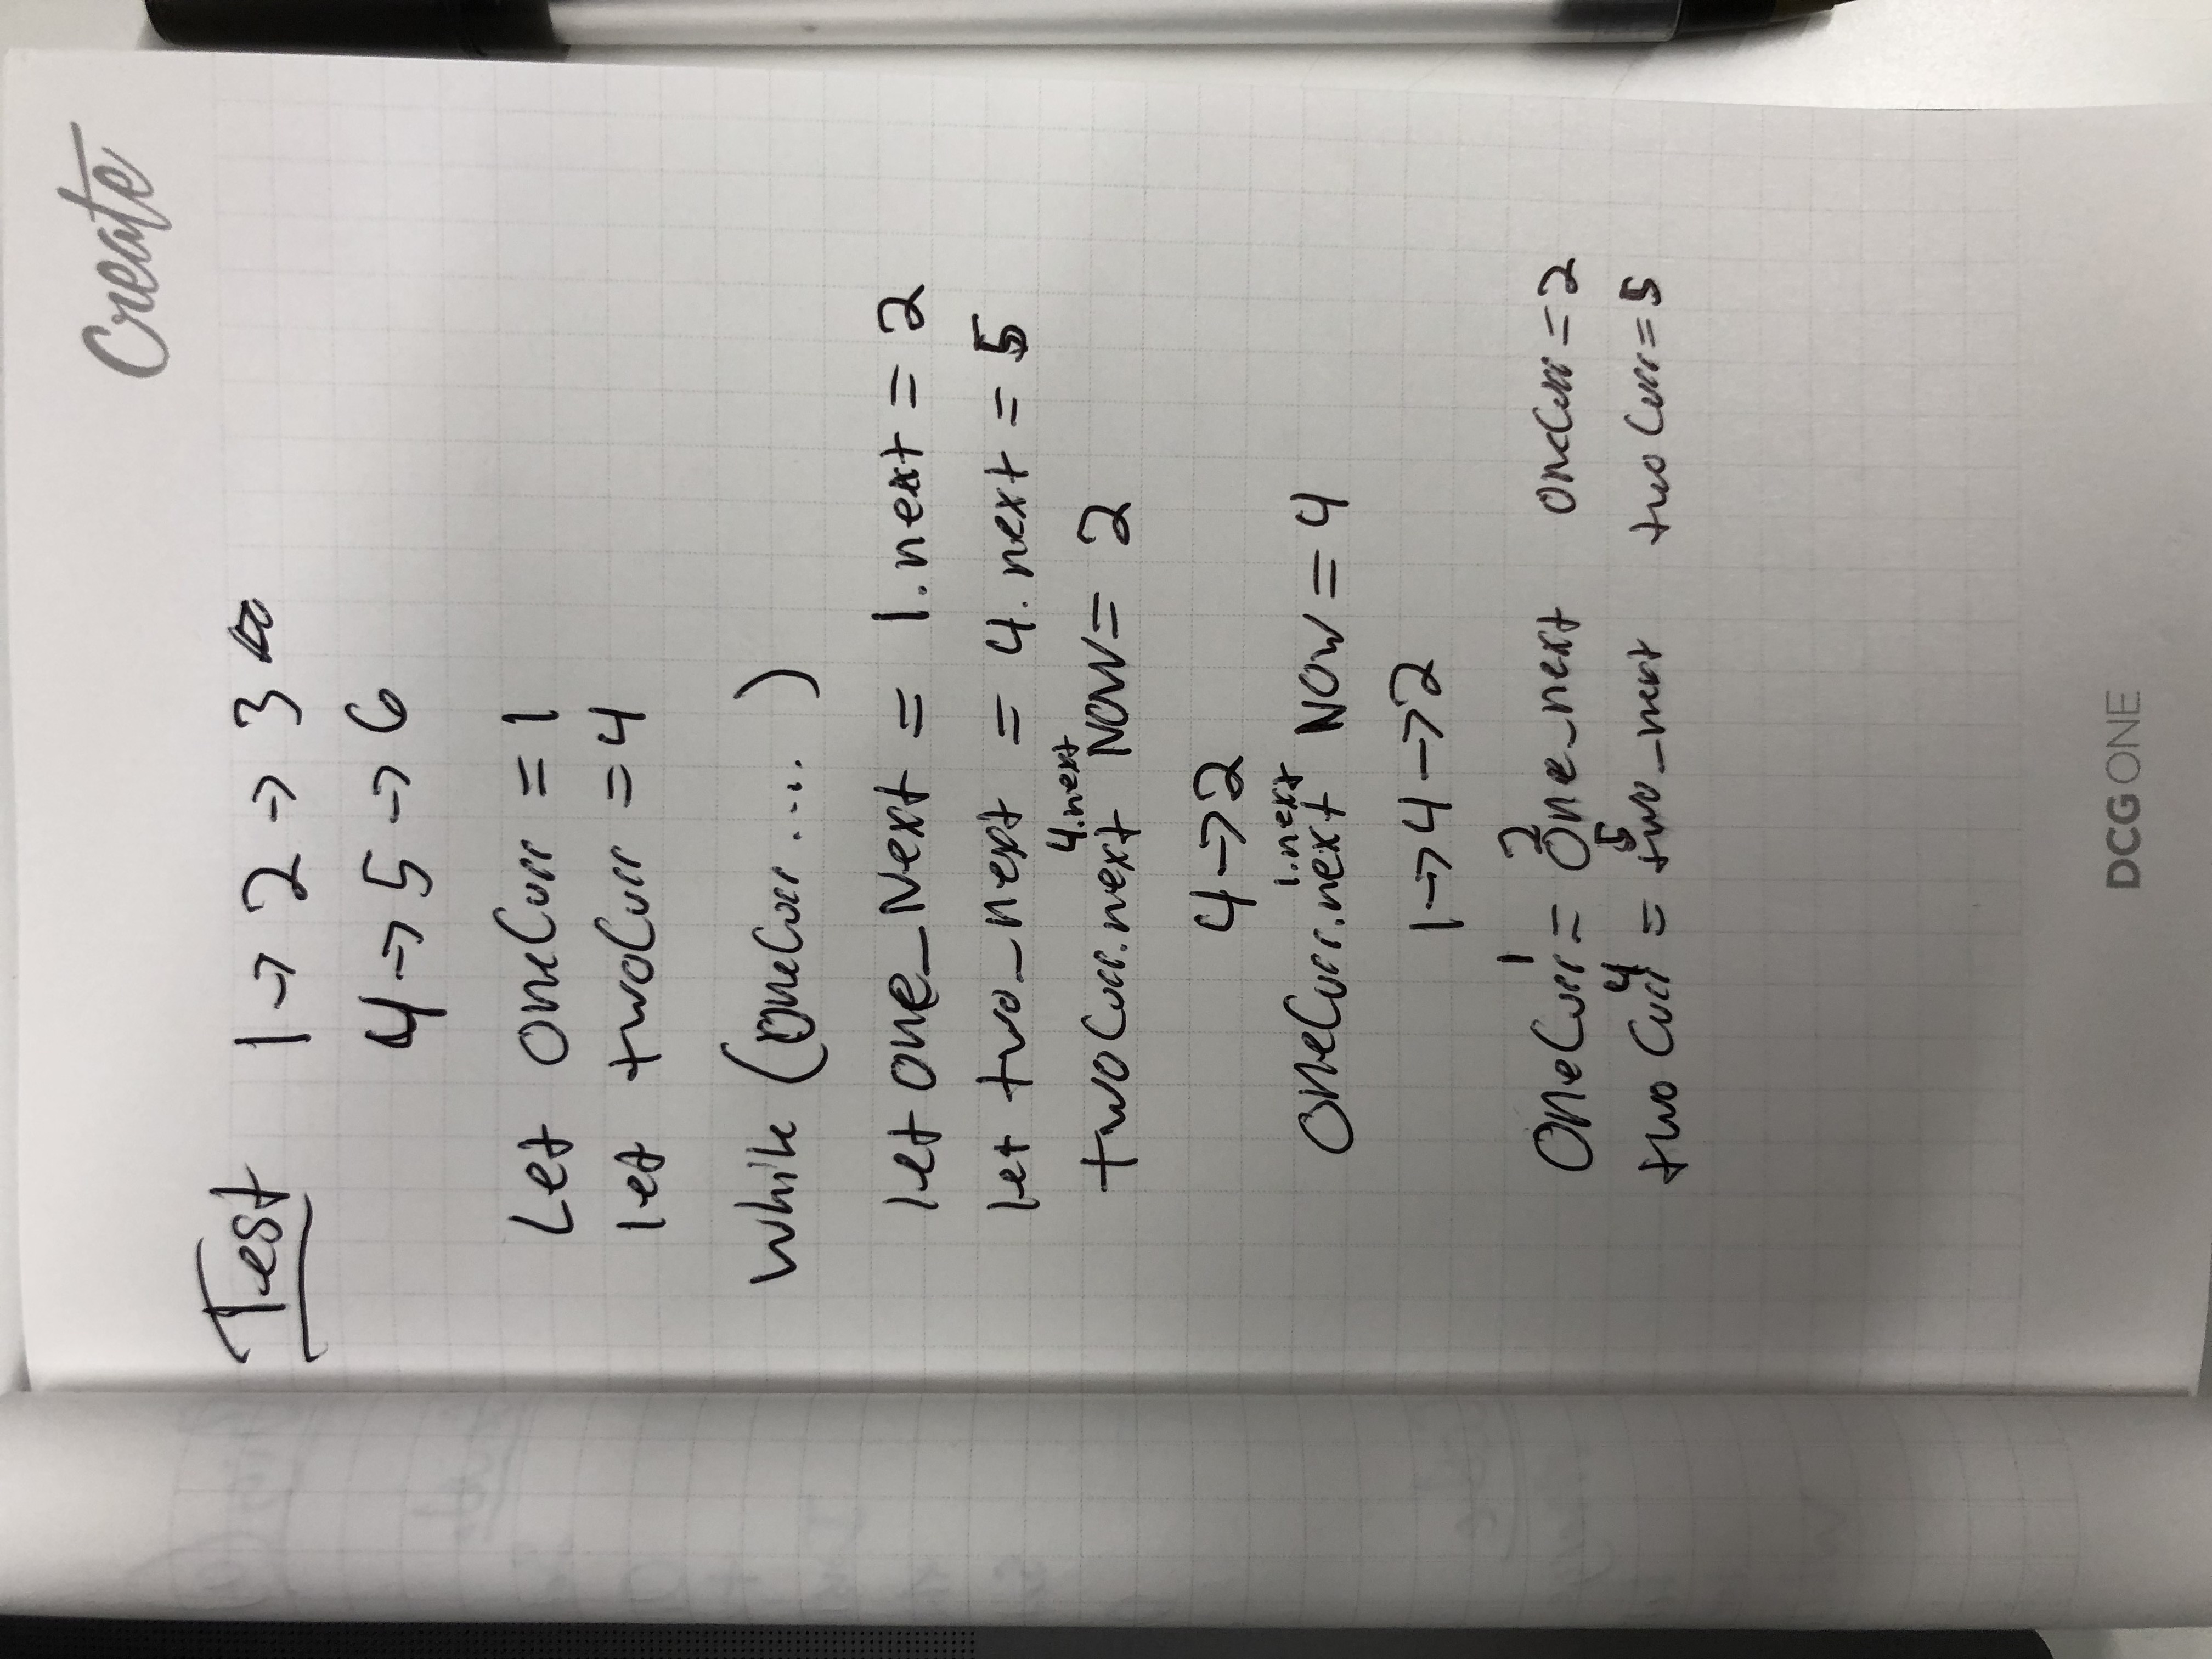 Create
Test 1 → 2 → 3
4 → 5 → 6
Let oneCurr = 1
let twoCurr = 4
While (oneCurr ....)
let one_Next = 1.next = 2
let two_next = 4.next = 5
4.next
twoCurr.next NOW = 2
4 → 2
1.next
oneCurr.next NOW = 4
1 → 4 → 2
1 2
OneCurr = One_next oneCurr = 2
4 5
twoCurr = two_next twoCurr = 5
DCG ONE